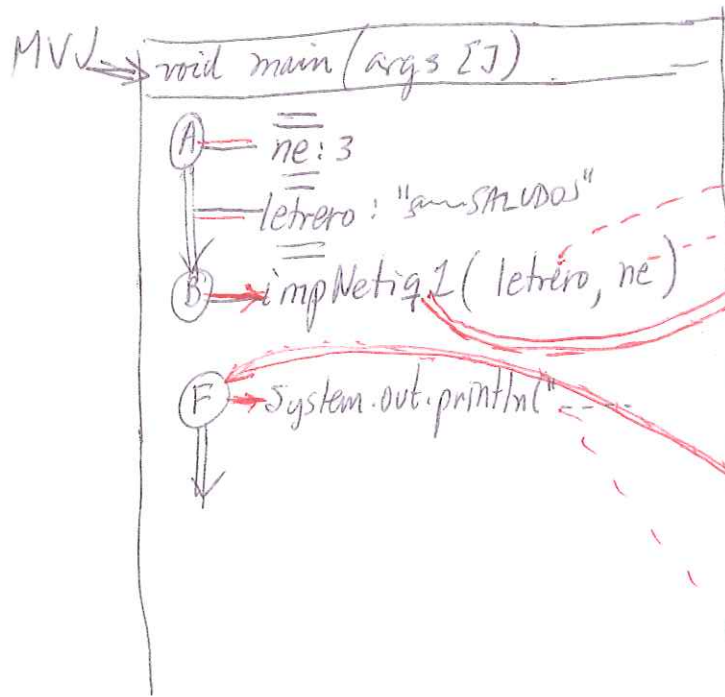 MVJ void main (args [])
A ne: 3
letrero: "SALUDOS"
B impNetiq1 ( letrero, ne )
F System.out.println("----